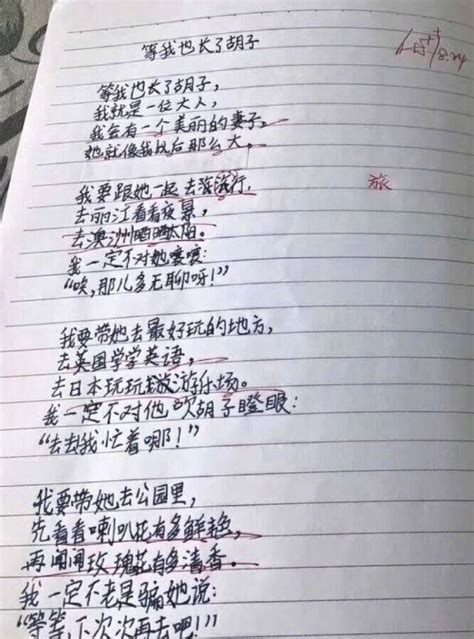 等我也长了胡子
等我也长了胡子,
我就是一位大人,
我会有一个美丽的妻子,
她就像我以后那么大。
我要跟她一起去旅行,
旅
去丽江看看夜景,
去澳洲晒晒太阳。
我一定不对她嚷嚷:
“唉,那儿多无聊呀!”
我要带她去最好玩的地方,
去英国学学英语,
去日本玩玩游乐场。
我一定不对他,吹胡子瞪眼:
“去去我忙着哪!”
我要带她去公园里,
先看看喇叭花有多鲜艳,
再闻闻玫瑰花有多清香。
我一定不老是骗她说:
“等等,下次次再去吧!”